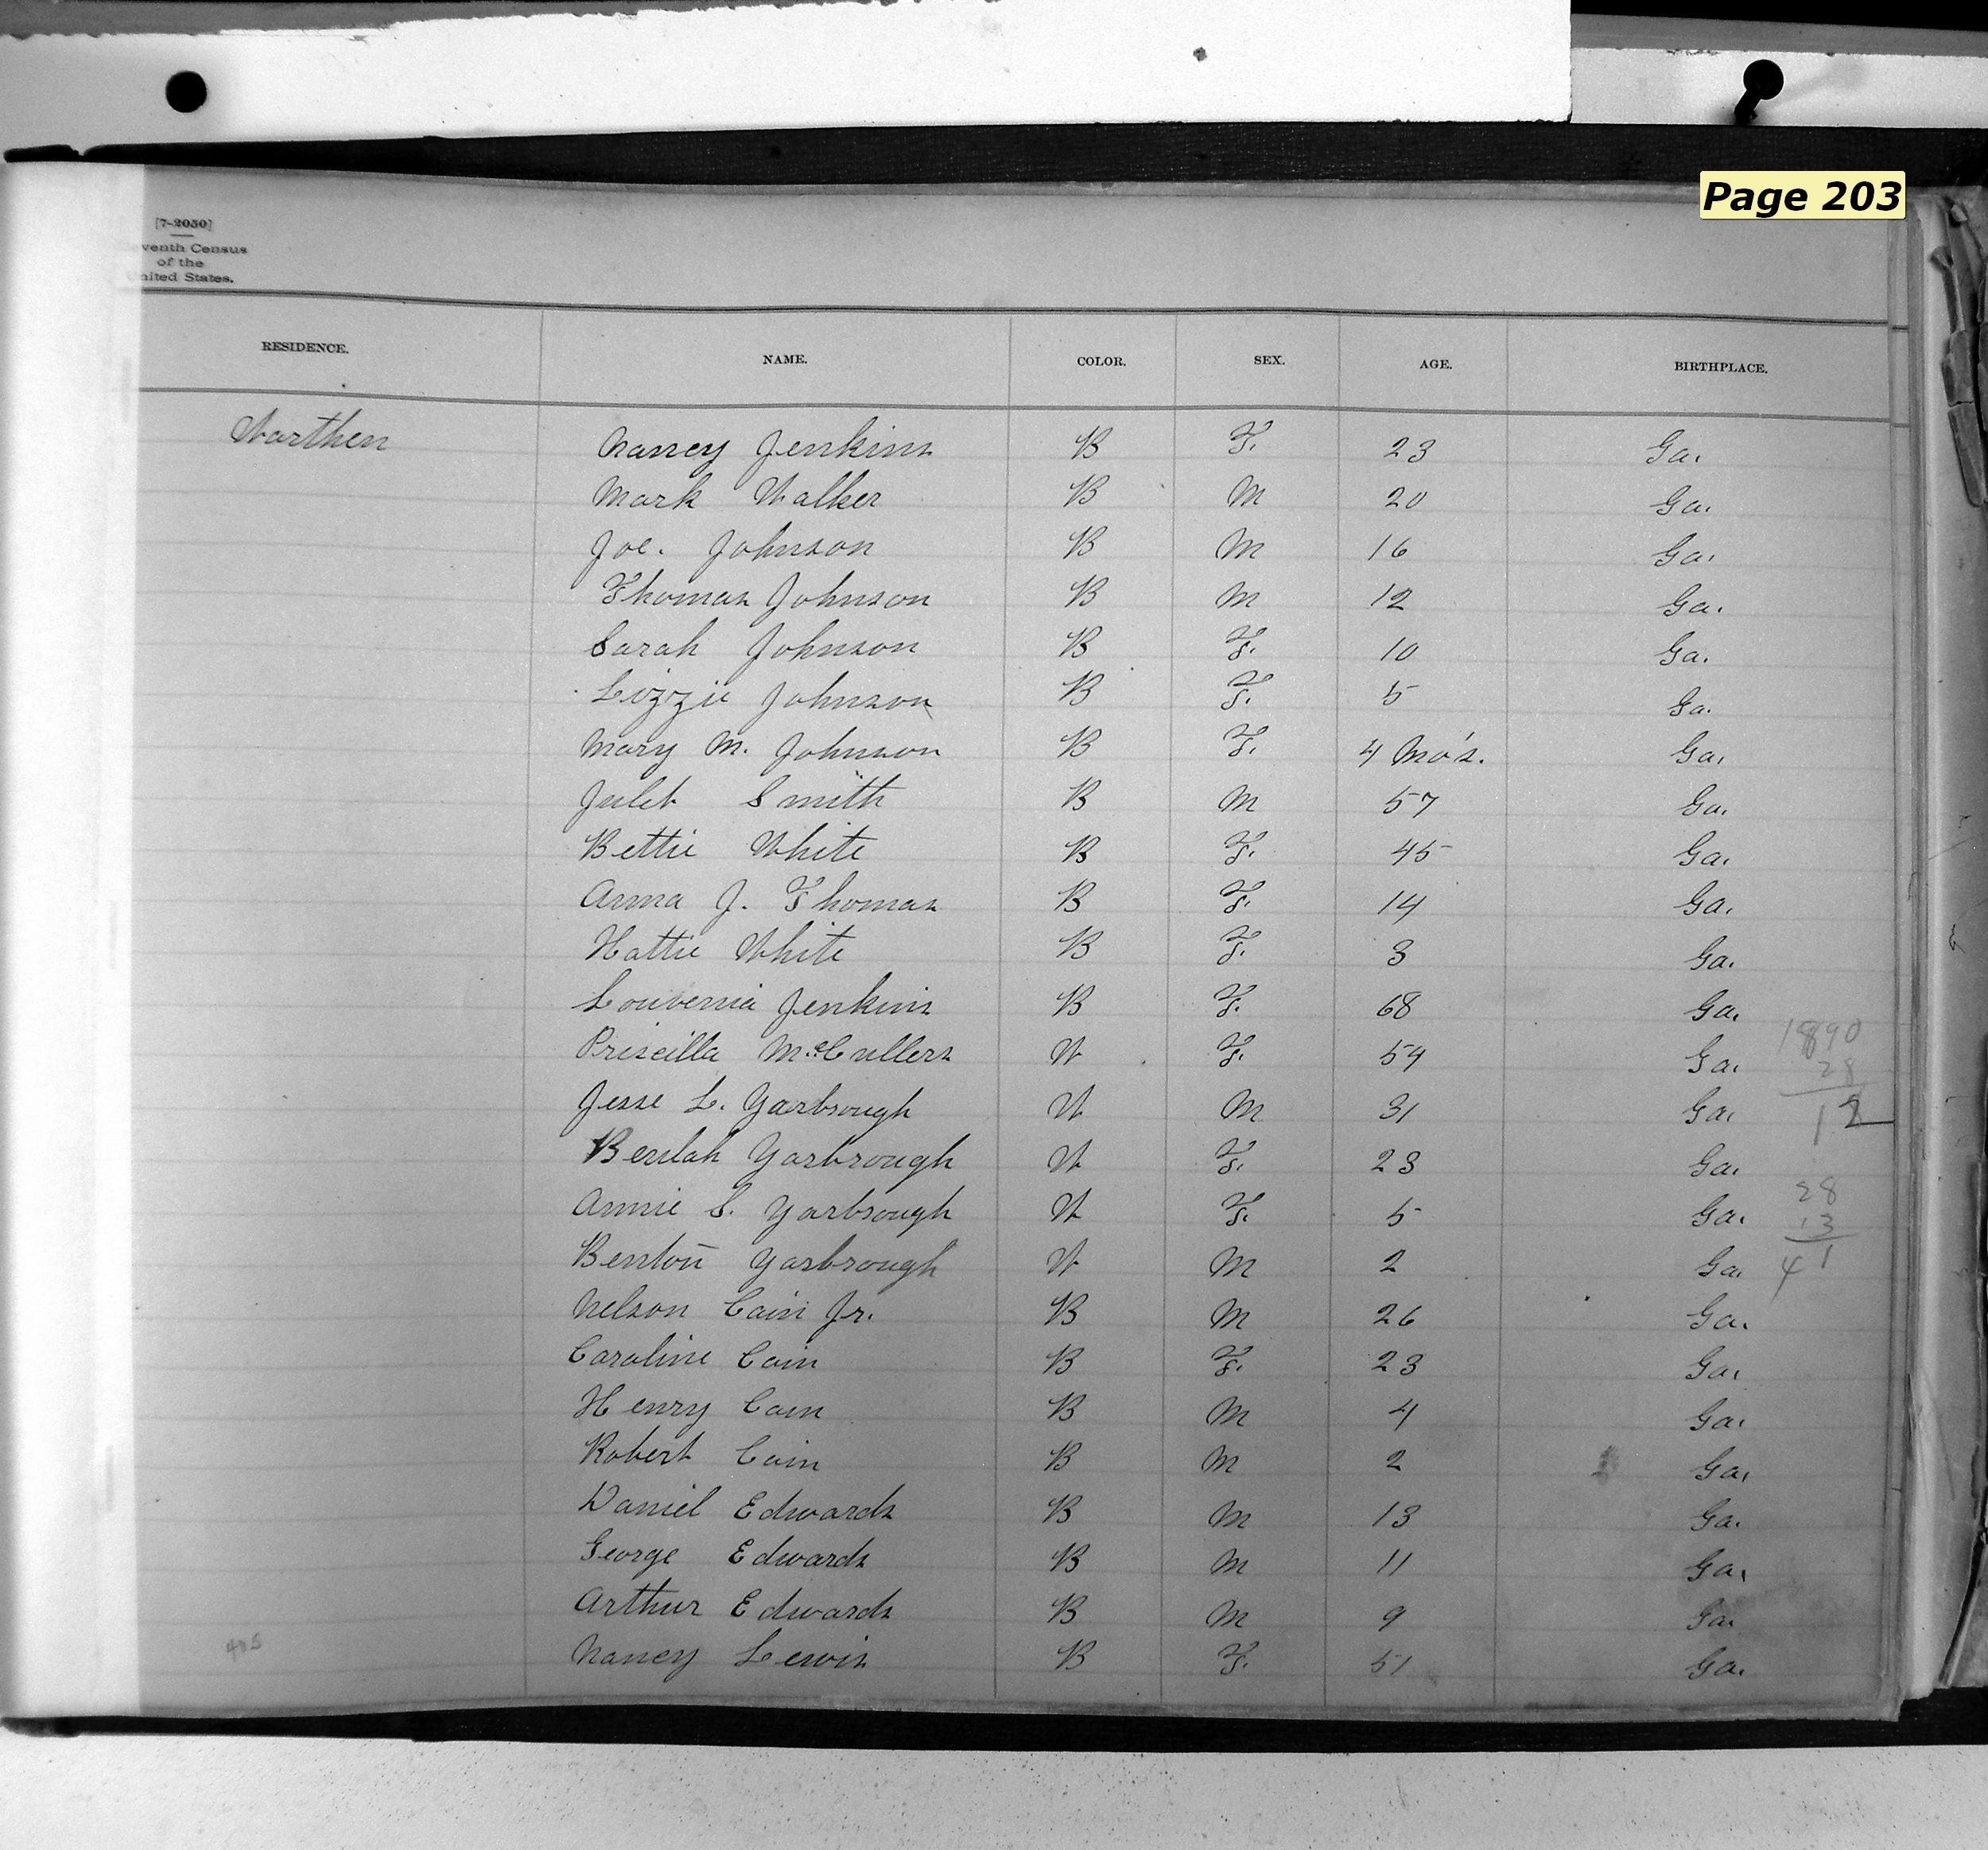 Page 203
[7-2050]
venth Census
of the
nited States.
RESIDENCE. NAME. COLOR. SEX. AGE. BIRTHPLACE.
Warthen Nancy Jenkins B F. 23 Ga.
Mark Walker B M 20 Ga.
Joe. Johnson B M 16 Ga.
Thomas Johnson B M 12 Ga.
Sarah Johnson B F. 10 Ga.
Lizzie Johnson B F. 5 Ga.
Mary M. Johnson B F. 4 Mo's. Ga.
Julet Smith B M 57 Ga.
Bettie White B F. 45 Ga.
Anna J. Thomas B F. 14 Ga.
Hattie White B F. 3 Ga.
Louvenia Jenkins B F. 68 Ga.
Priscilla McCullers W F. 54 Ga. 1890
28
Jesse L. Yarbrough W M 31 Ga. 12
Beulah Yarbrough W F. 23 Ga.
28
Annie S. Yarbrough W F. 5 Ga. 13
Benton Yarbrough W M 2 Ga. 41
Nelson Cain Jr. B M 26 Ga.
Caroline Cain B F. 23 Ga.
Henry Cain B M 4 Ga.
Robert Cain B M 2 Ga.
Daniel Edwards B M 13 Ga.
George Edwards B M 11 Ga.
Arthur Edwards B M 9 Ga.
Nancy Lewis B F. 51 Ga.